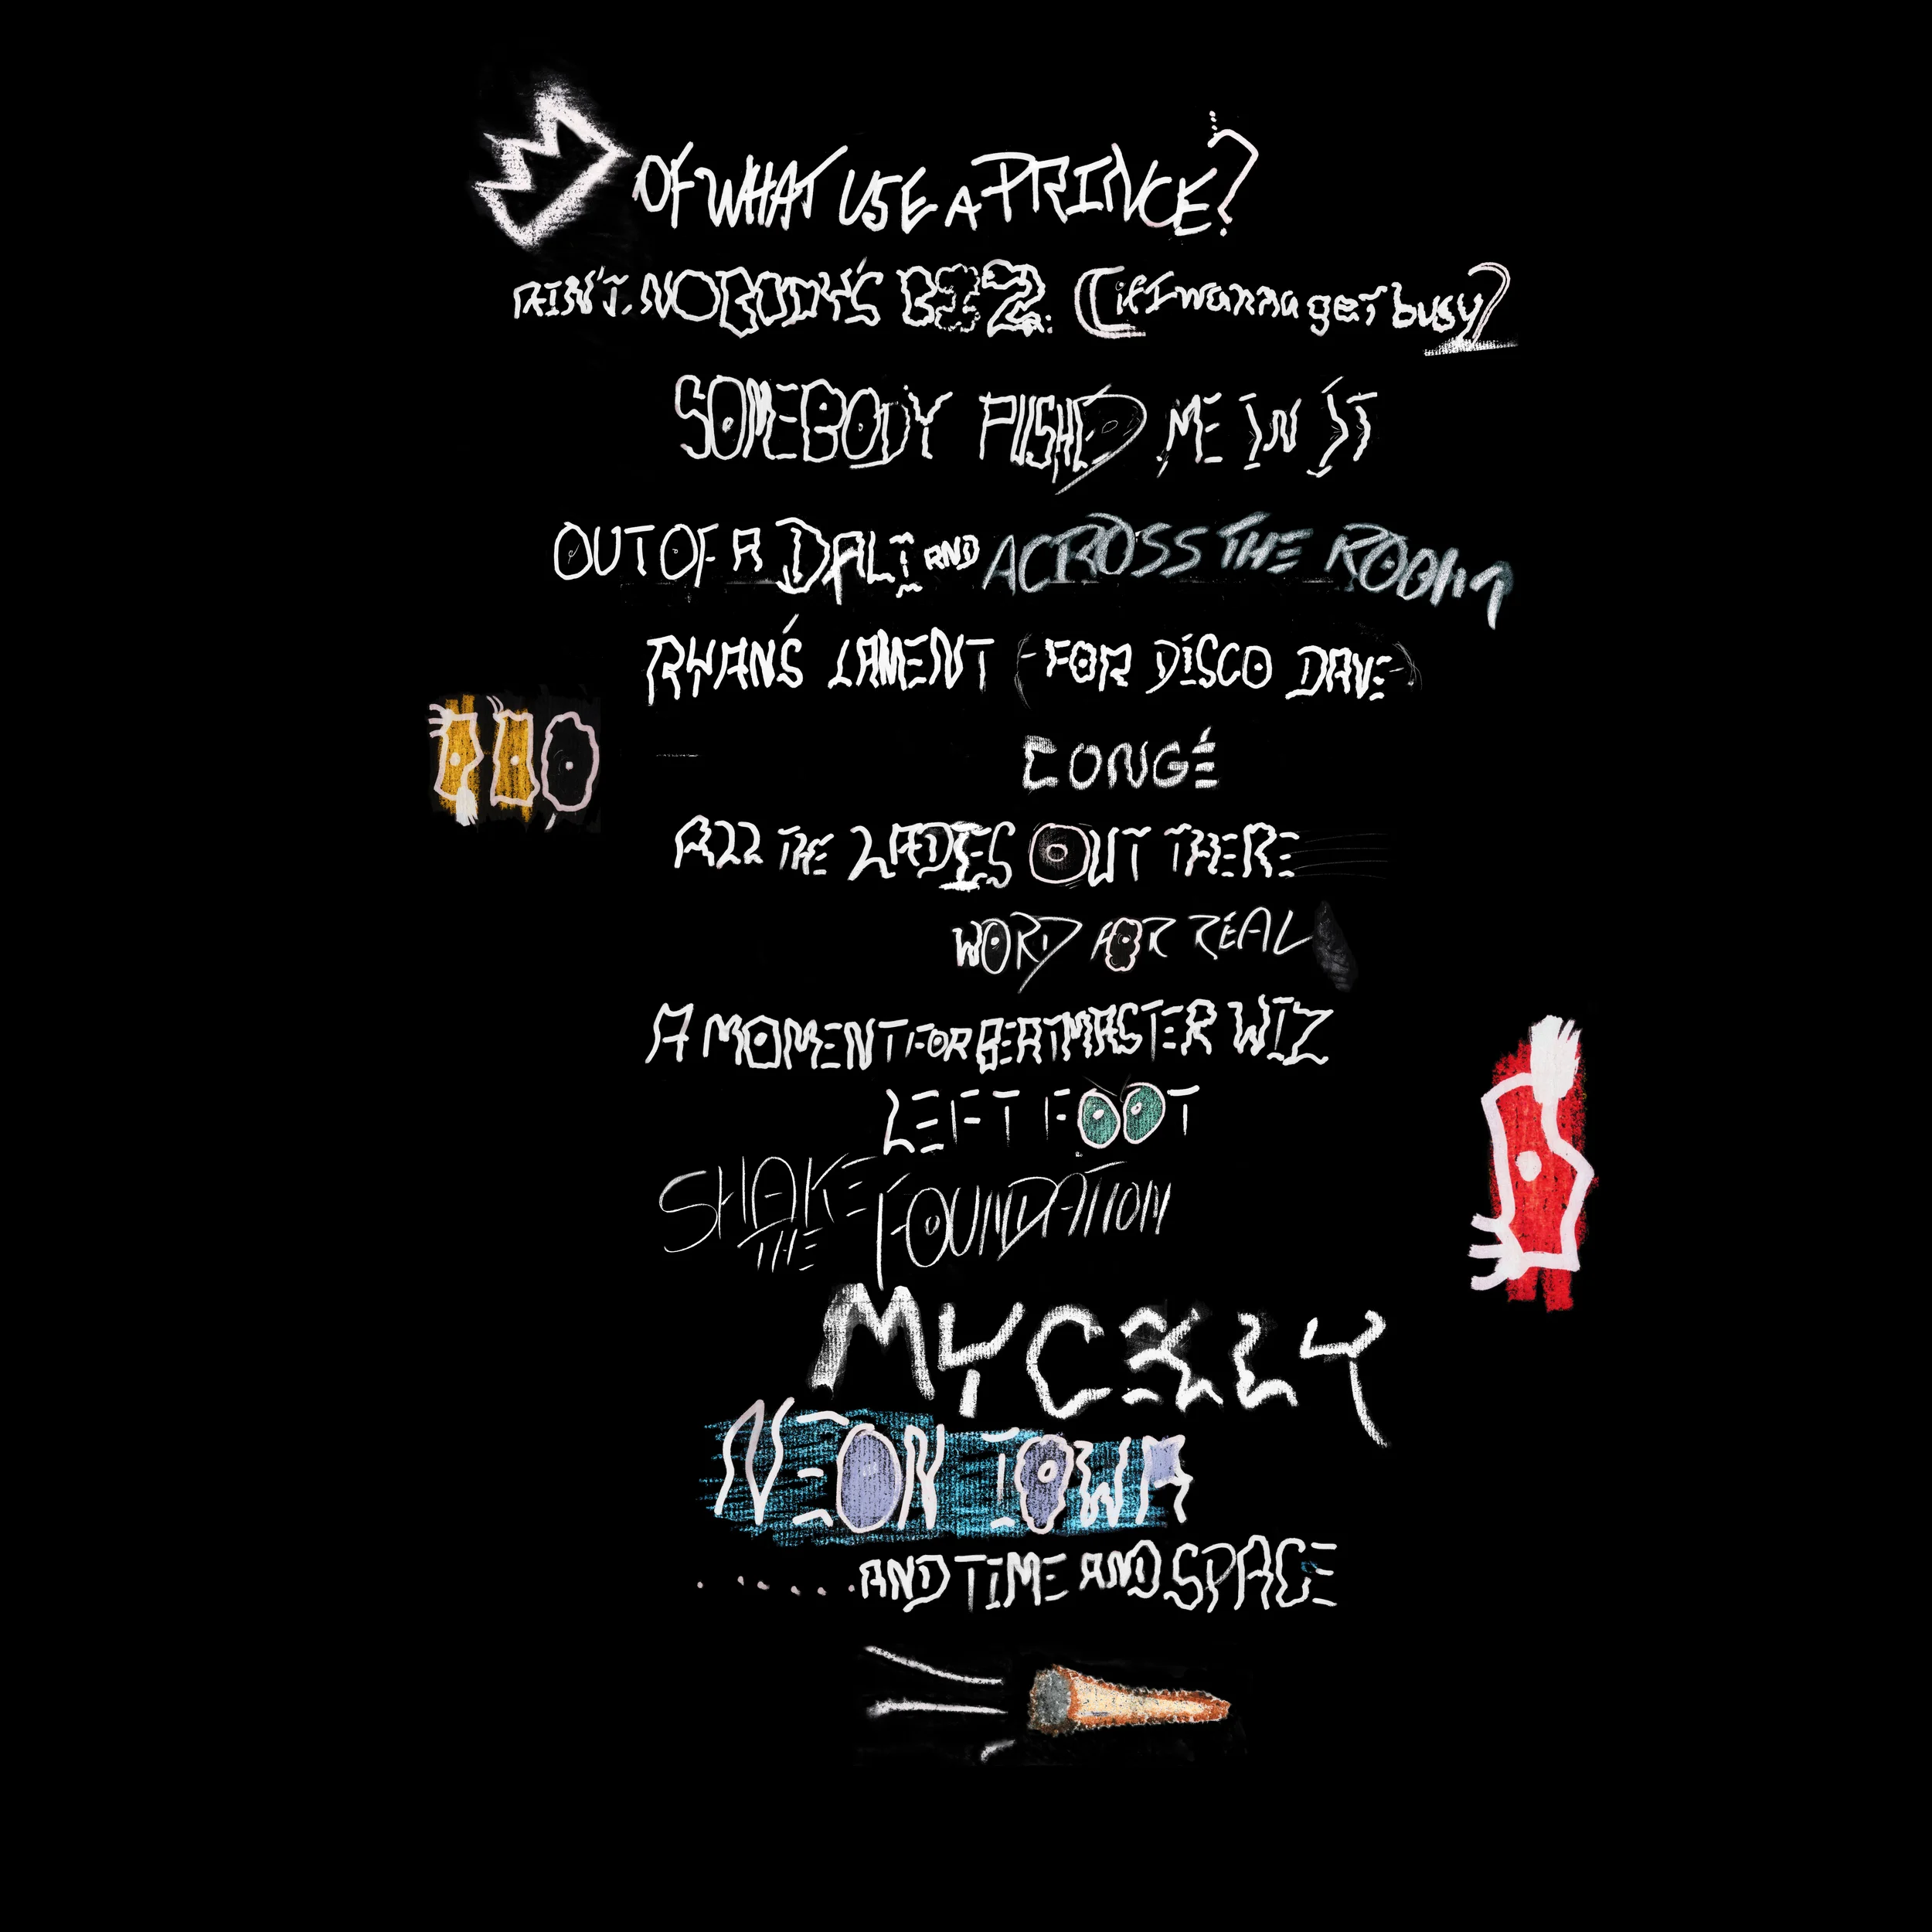 OF WHAT USE A PRINCE?
AIN'T NOBODY'S BIZ. (if I wanna get busy)
SOMEBODY PUSHED ME IN IT
OUT OF A DALI AND ACROSS THE ROOM
RYAN'S LAMENT (FOR DISCO DAVE)
CONGÉ
ALL THE LADIES OUT THERE
WORD FOR REAL
A MOMENT FOR BEATMASTER WIZ
LEFT FOOT
SHAKE THE FOUNDATION
NEON IOWA
......AND TIME AND SPACE